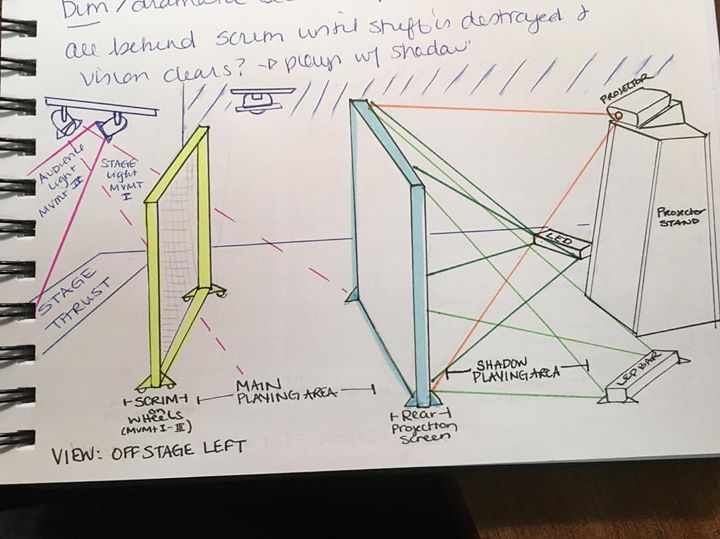 Dim / dramatic
all behind scrim until stuff is destroyed &
vision clears? → plays w/ shadow
PROJECTOR
AUDIENCE
Light
MVMT II
STAGE
Light
MVMT
I
Projector
STAND
LED
STAGE
THRUST
SHADOW
PLAYING AREA
LED BAR
MAIN
PLAYING AREA
SCRIM
on
WHEELS
(MVMT I - III)
Rear
Projection
Screen
VIEW: OFFSTAGE LEFT